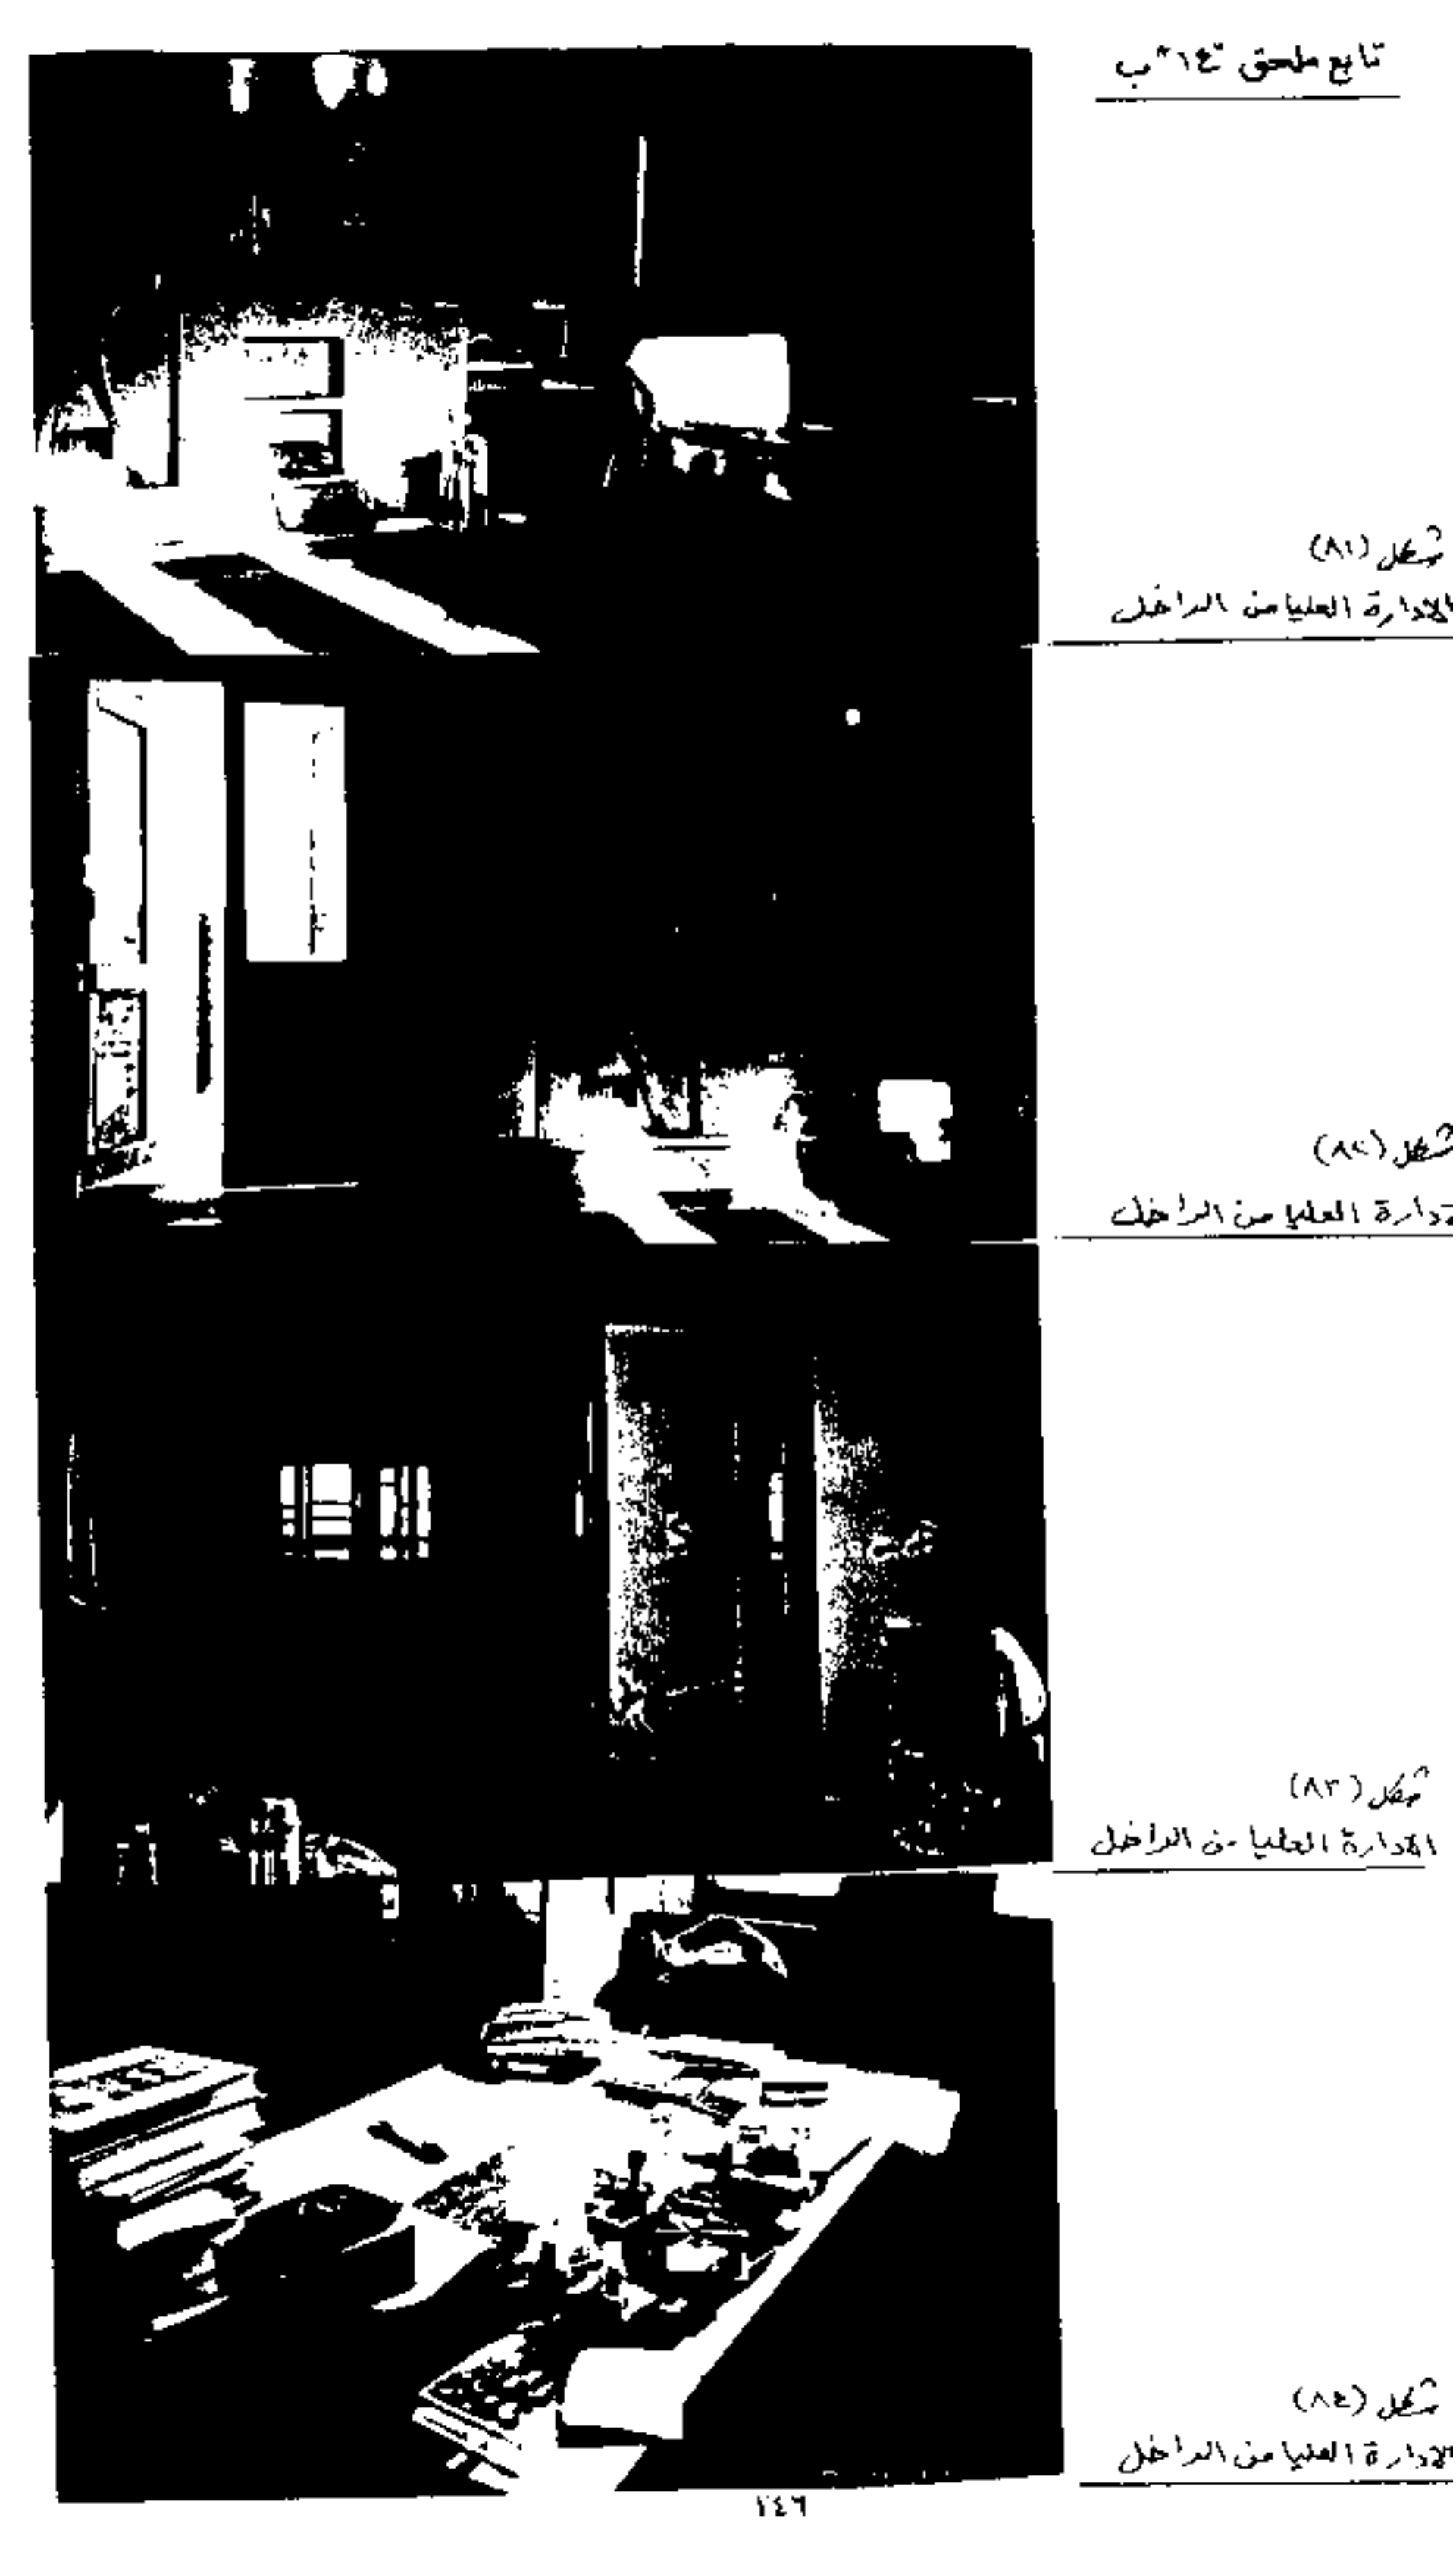 تابع ملحق "١٤" ب
شكل (٨١)
الادارة العليا من الداخل
شكل (٨٢)
دارة العليا من الداخل
شكل (٨٣)
الادارة العليا من الداخل
شكل (٨٤)
الادارة العليا من الداخل
٢٤٦